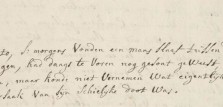 to, S morgens vonden een mans Slaaf
gen, had daags te Voren nog gesont geweest
maar konde niet Vernemen Wat eigentlyk
Zaak van Syn Schielyke doot Was.